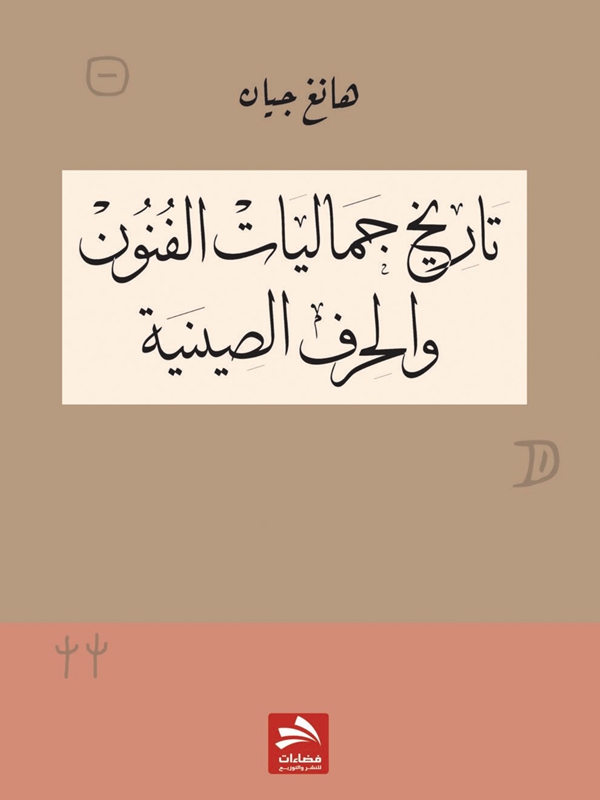 هانغ جيان
تَارِيخ جَمَاليَات الفُنُون
والحِرف الصِينيَة
فضاءات
للنشر والتوزيع